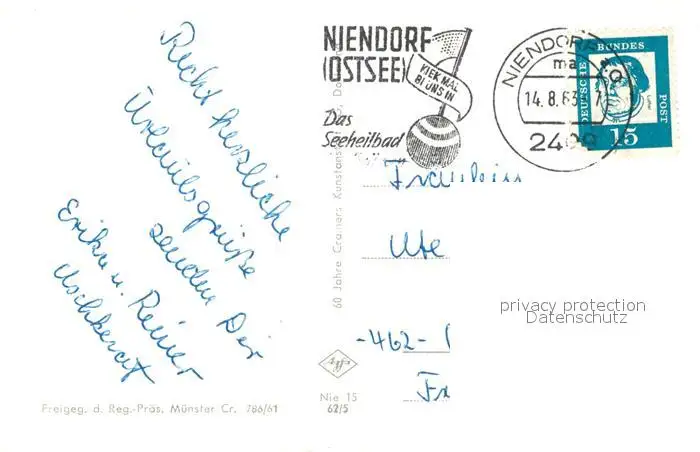 Recht herzliche
Urlaubsgrüße
senden Dir
Erika u. Reiner
NIENDORF
(OSTSEE)
KIEK MAL
BI UNS IN
Das
Seeheilbad
NIENDORF
14.8.63
DEUTSCHE BUNDESPOST
15
Fräulein
Ute
-462-
60 Jahre Cramers Kunstanstalt
privacy protection
Datenschutz
Agfa
Nie 15
62/5
Freigeg. d. Reg.-Präs. Münster Cr. 786/61